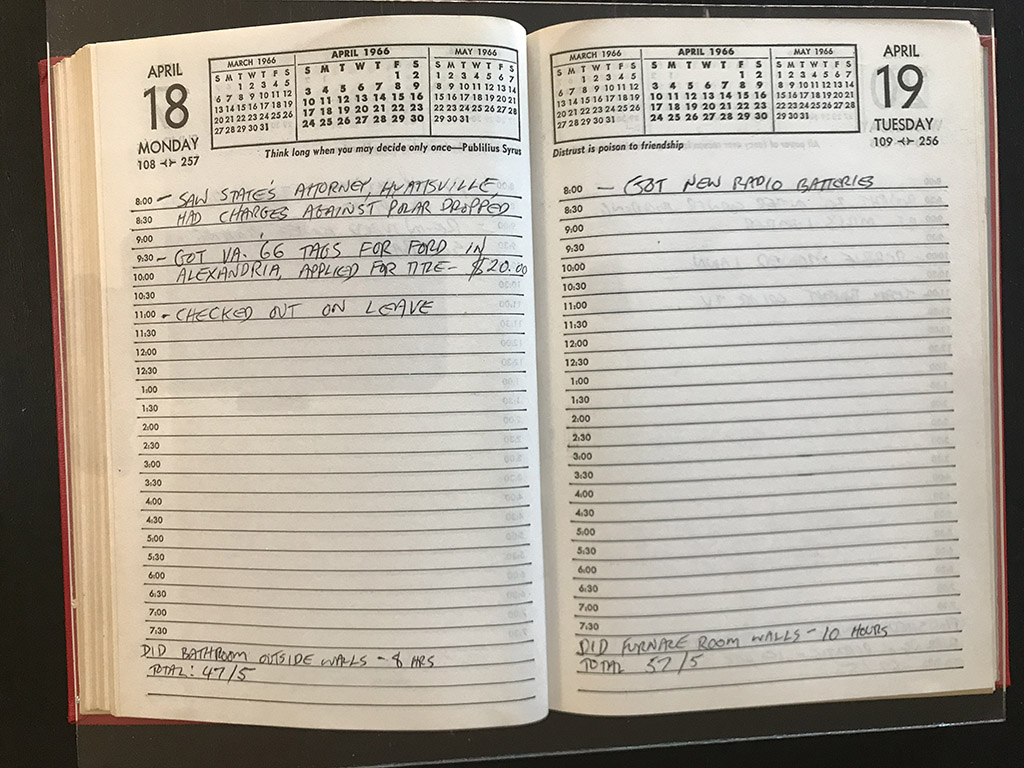 APRIL
18
MONDAY
108 257
MARCH 1966
S M T W T F S
1 2 3 4 5
6 7 8 9 10 11 12
13 14 15 16 17 18 19
20 21 22 23 24 25 26
27 28 29 30 31
APRIL 1966
S M T W T F S
1 2
3 4 5 6 7 8 9
10 11 12 13 14 15 16
17 18 19 20 21 22 23
24 25 26 27 28 29 30
MAY 1966
S M T W T F S
1 2 3 4 5 6 7
8 9 10 11 12 13 14
15 16 17 18 19 20 21
22 23 24 25 26 27 28
29 30 31
Think long when you may decide only once—Publilius Syrus
8:00 - SAW STATE'S ATTORNEY, HYATTSVILLE
8:30 HAD CHARGES AGAINST POLAR DROPPED
9:00
9:30 - GOT VA. '66 TAGS FOR FORD IN
10:00 ALEXANDRIA, APPLIED FOR TITLE - $20.00
10:30
11:00 - CHECKED OUT ON LEAVE
11:30
12:00
12:30
1:00
1:30
2:00
2:30
3:00
3:30
4:00
4:30
5:00
5:30
6:00
6:30
7:00
7:30
DID BATHROOM OUTSIDE WALLS - 8 HRS
TOTAL: 47/5
MARCH 1966
S M T W T F S
1 2 3 4 5
6 7 8 9 10 11 12
13 14 15 16 17 18 19
20 21 22 23 24 25 26
27 28 29 30 31
APRIL 1966
S M T W T F S
1 2
3 4 5 6 7 8 9
10 11 12 13 14 15 16
17 18 19 20 21 22 23
24 25 26 27 28 29 30
MAY 1966
S M T W T F S
1 2 3 4 5 6 7
8 9 10 11 12 13 14
15 16 17 18 19 20 21
22 23 24 25 26 27 28
29 30 31
APRIL
19
TUESDAY
109 256
Distrust is poison to friendship
8:00 - GOT NEW RADIO BATTERIES
8:30
9:00
9:30
10:00
10:30
11:00
11:30
12:00
12:30
1:00
1:30
2:00
2:30
3:00
3:30
4:00
4:30
5:00
5:30
6:00
6:30
7:00
7:30
DID FURNARE ROOM WALLS - 10 HOURS
TOTAL 57/5